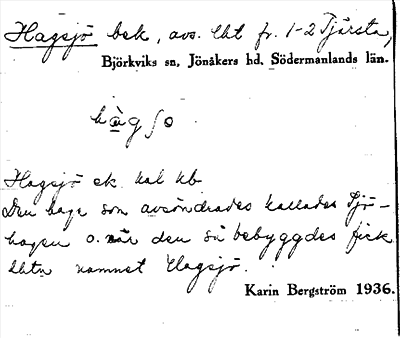 Hagsjö bek, avs. lht fr. 1-2 Tjärsta,
Björkviks sn, Jönåkers hd, Södermanlands län.
Hagsjö ek. kal kb
Den hage som avsöndrades kallades Sjö-
hagen o. när den så bebyggdes fick
lhtn namnet Hagsjö.
Karin Bergström 1936.